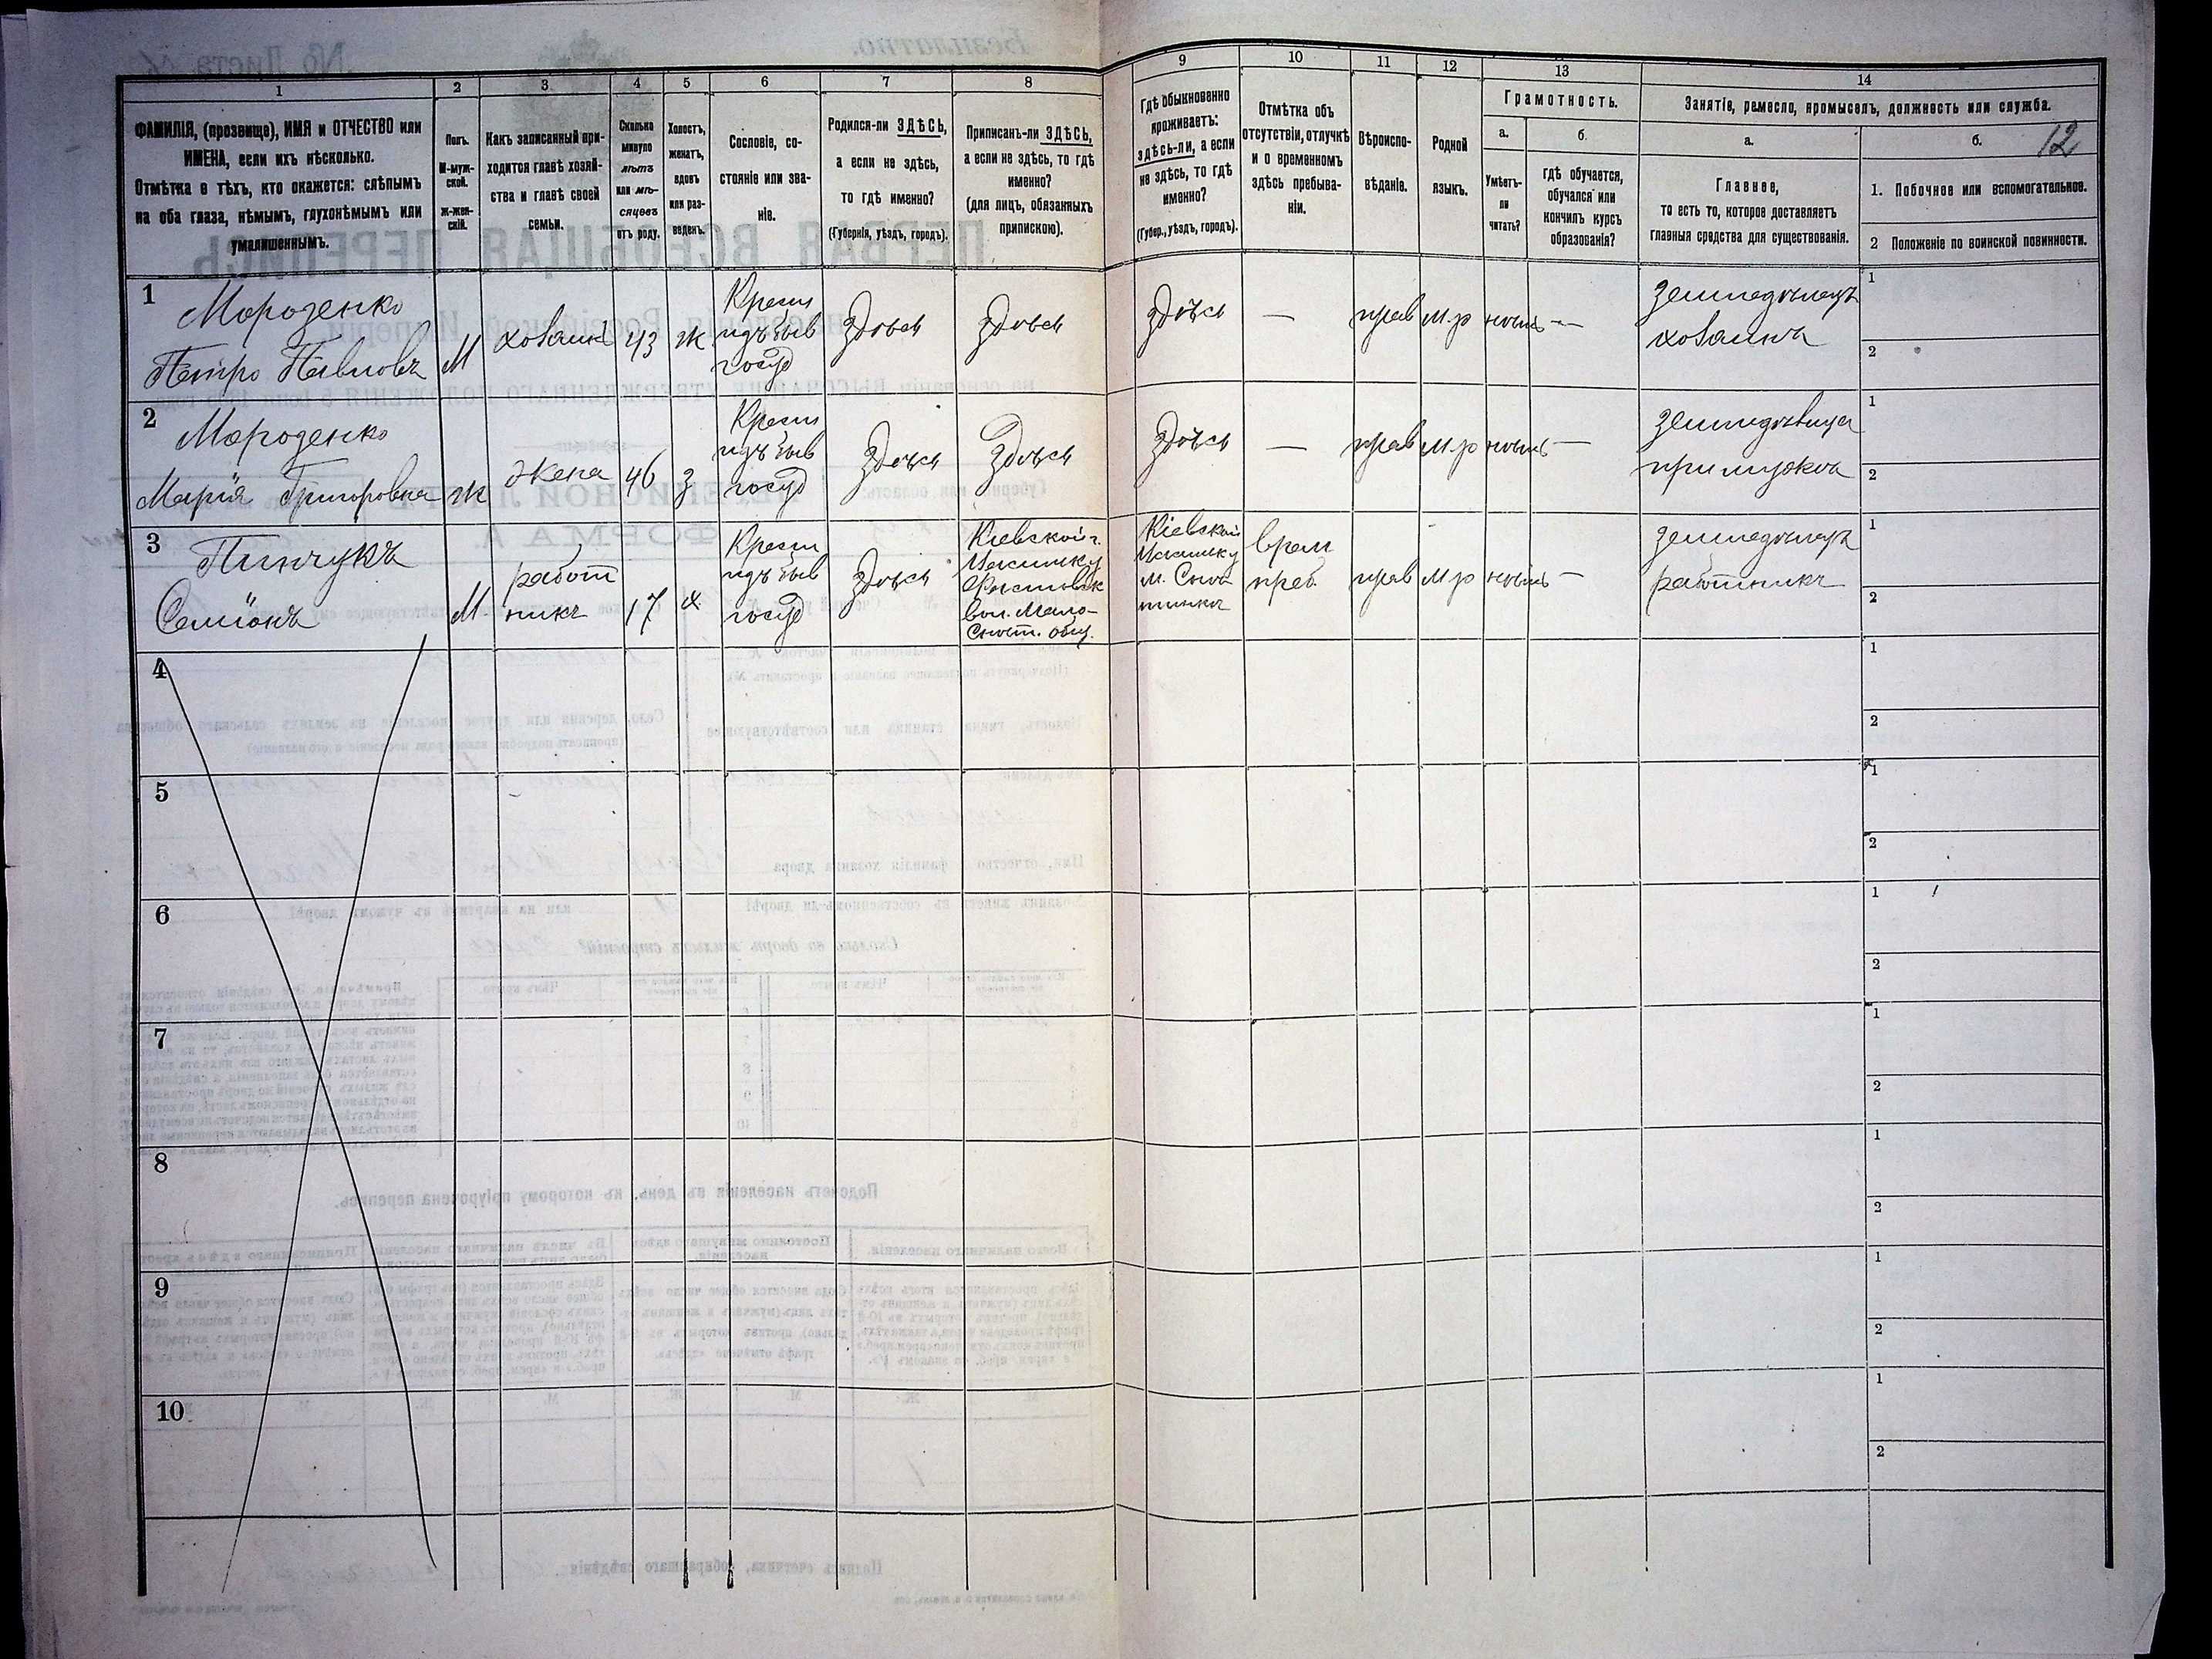 12
1
2
3
4
5
6
7
8
9
10
11
12
13
14
ФАМИЛІЯ, (прозвище), ИМЯ и ОТЧЕСТВО или
ИМЕНА, если ихъ нѣсколько.
Отмѣтка о тѣхъ, кто окажется: слѣпымъ
на оба глаза, нѣмымъ, глухонѣмымъ или
умалишеннымъ.
Полъ.
М-муж-
ской.
Ж-жен-
скій.
Какъ записанный при-
ходится главѣ хозяй-
ства и главѣ своей
семьи.
Сколько
минуло
лѣтъ
или мѣ-
сяцевъ
отъ роду.
Холостъ,
женатъ,
вдовъ
или раз-
веденъ.
Сословіе, со-
стояніе или зва-
ніе.
Родился-ли ЗДѢСЬ,
а если не здѣсь,
то гдѣ именно?
(Губернія, уѣздъ, городъ).
Приписанъ-ли ЗДѢСЬ,
а если не здѣсь, то гдѣ
именно?
(для лицъ, обязанныхъ
припискою).
Гдѣ обыкновенно
проживаетъ:
здѣсь-ли, а если
не здѣсь, то гдѣ
именно?
(Губер., уѣздъ, городъ).
Отмѣтка объ
отсутствіи, отлучкѣ
и о временномъ
здѣсь пребыва-
ніи.
Вѣроиспо-
вѣданіе.
Родной
языкъ.
Грамотность.
а.
б.
Умѣетъ-
ли
читать?
гдѣ обучается,
обучался или
кончилъ курсъ
образованія?
Занятіе, ремесло, промыселъ, должность или служба.
а.
б.
Главное,
то есть то, которое доставляетъ
главныя средства для существованія.
1. Побочное или вспомогательное.
2 Положеніе по воинской повинности.
1
Мороденко
Петро Павловъ
М
хозаинъ
43
ж
Крест
издъ быв
госуд
Здѣсь
Здѣсь
Здѣсь
—
прав
м.р
нѣтъ
—
земледѣлецъ
хозаинъ
1
2
2
Мароденко
Марія Григоровна
ж
жена
46
з
Крест
издъ быв
госуд
Здѣсь
Здѣсь
Здѣсь
—
прав
м.р
нѣтъ
—
земледѣлица
при мужѣ
1
2
3
Пинчукъ
Семіонъ
М.
работ
никъ
17
х
Крест
издъ быв
госуд
Здѣсь
Кіевской г.
Фастовск
вол. Мало-
Снѣт. общ.
Кіевской
м. Снѣ
тинка
врем
преб
прав
м р
нѣтъ
—
земледѣлецъ
работникъ
1
2
4
1
2
5
1
2
6
1
2
7
1
2
8
1
2
9
1
2
10
1
2